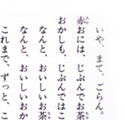 いや、まて、ごらん。
赤おには、じぶんでお茶
おかしも、じぶんではこ
なんと、おいしいお茶
なんと、おいしいおか
これまで、ずっと、こ